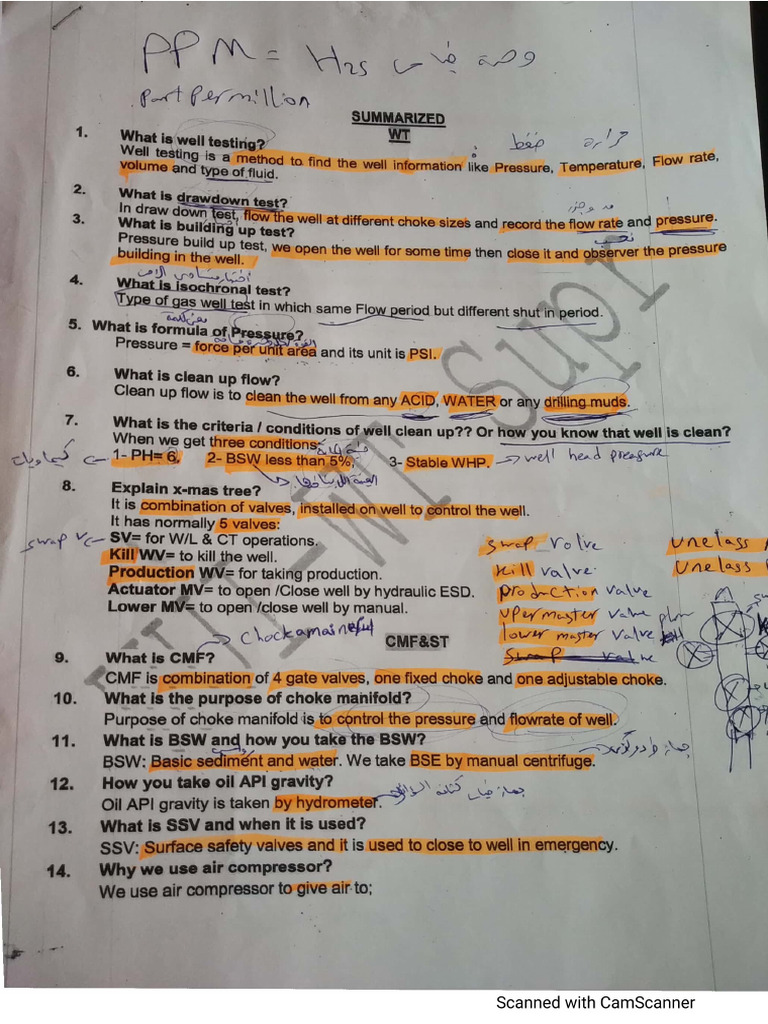 PPM = H2S وحدة قياس
Part Per million
SUMMARIZED
WT
حرارة ضغط
1. What is well testing?
Well testing is a method to find the well information like Pressure, Temperature, Flow rate,
volume and type of fluid.
2. What is drawdown test?
In draw down test, flow the well at different choke sizes and record the flow rate and pressure.
3. What is building up test?
Pressure build up test, we open the well for some time then close it and observer the pressure
building in the well.
4. What is isochronal test?
Type of gas well test in which same Flow period but different shut in period.
5. What is formula of Pressure?
Pressure = force per unit area and its unit is PSI.
6. What is clean up flow?
Clean up flow is to clean the well from any ACID, WATER or any drilling muds.
7. What is the criteria / conditions of well clean up?? Or how you know that well is clean?
When we get three conditions:
كيماويات
1- PH= 6, 2- BSW less than 5%, 3- Stable WHP. well head pressure
8. Explain x-mas tree?
It is combination of valves, installed on well to control the well.
It has normally 5 valves:
swap v SV= for W/L & CT operations.
Kill WV= to kill the well.
Production WV= for taking production.
Actuator MV= to open /Close well by hydraulic ESD.
Lower MV= to open /close well by manual.
swap volive
kill valve
production valve
upermaster valve
lower master valve
swap valve
uneloss
uneloss
CMF&ST
9. What is CMF?
CMF is combination of 4 gate valves, one fixed choke and one adjustable choke.
10. What is the purpose of choke manifold?
Purpose of choke manifold is to control the pressure and flowrate of well.
11. What is BSW and how you take the BSW?
BSW: Basic sediment and water. We take BSE by manual centrifuge.
12. How you take oil API gravity?
Oil API gravity is taken by hydrometer.
13. What is SSV and when it is used?
SSV: Surface safety valves and it is used to close to well in emergency.
14. Why we use air compressor?
We use air compressor to give air to;
Scanned with CamScanner